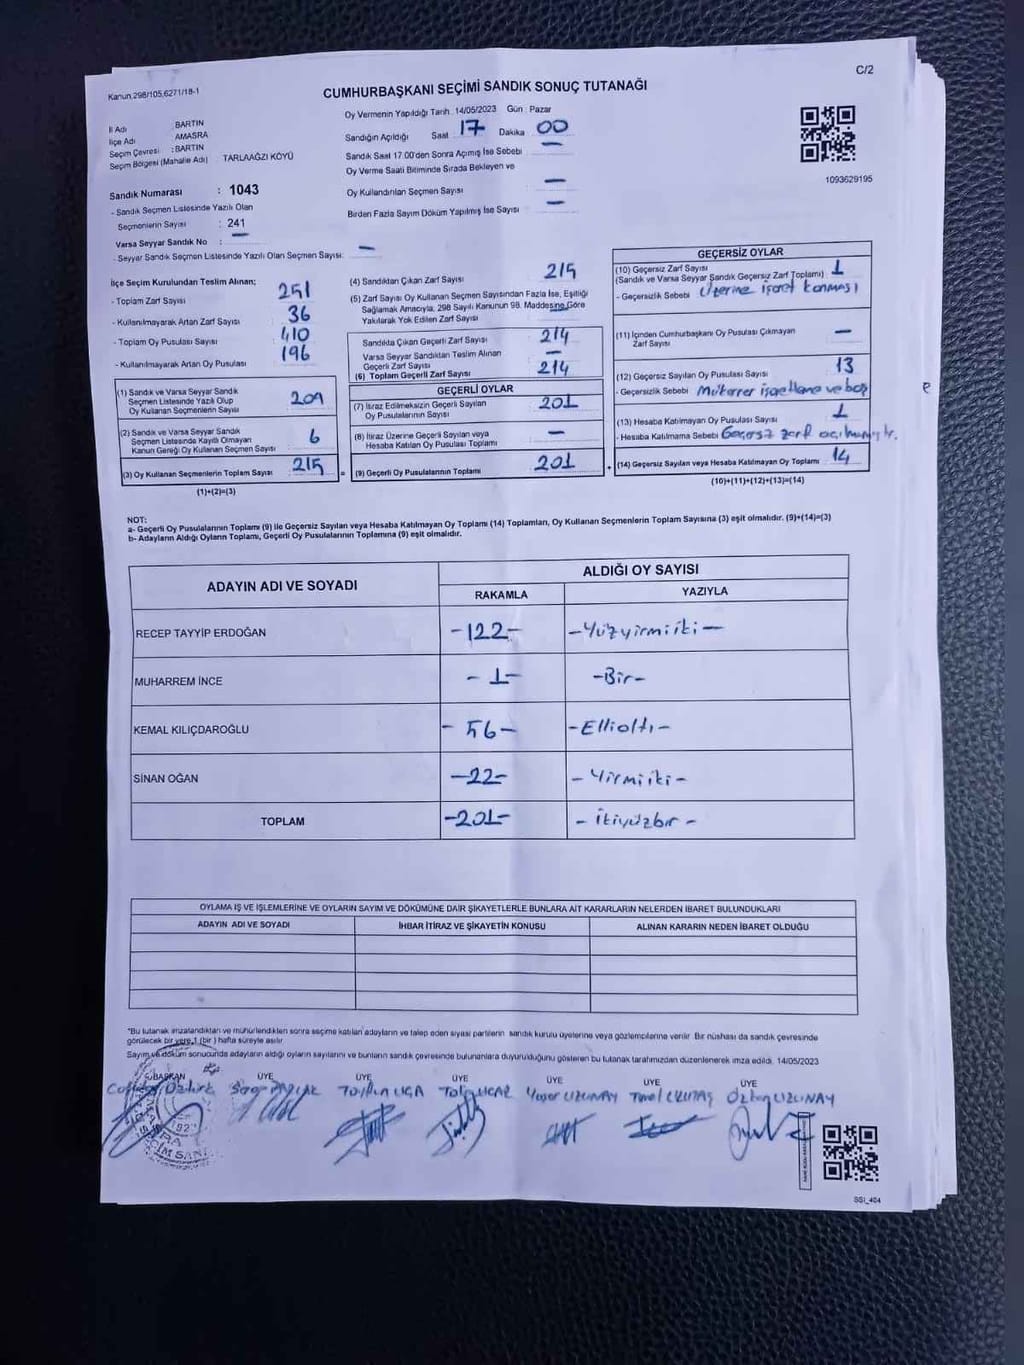 C/2
Kanun 298/105,6271/18-1
CUMHURBAŞKANI SEÇİMİ SANDIK SONUÇ TUTANAĞI
Oy Vermenin Yapıldığı Tarih 14/05/2023 Gün : Pazar
İl Adı : BARTIN
İlçe Adı AMASRA
Seçim Çevresi : BARTIN
Seçim Bölgesi (Mahalle Adı) TARLAAĞZI KÖYÜ
Sandığın Açıldığı Saat 17 Dakika 00
Sandık Saat 17.00'den Sonra Açılmış İse Sebebi —
Oy Verme Saati Bitiminde Sırada Bekleyen ve
Oy Kullandırılan Seçmen Sayısı —
Birden Fazla Sayım Döküm Yapılmış İse Sayısı —
1093629195
Sandık Numarası : 1043
- Sandık Seçmen Listesinde Yazılı Olan
Seçmenlerin Sayısı : 241
Varsa Seyyar Sandık No : —
- Seyyar Sandık Seçmen Listesinde Yazılı Olan Seçmen Sayısı: —
İlçe Seçim Kurulundan Teslim Alınan;
- Toplam Zarf Sayısı 251
- Kullanılmayarak Artan Zarf Sayısı 36
- Toplam Oy Pusulası Sayısı 410
- Kullanılmayarak Artan Oy Pusulası 196
(1) Sandık ve Varsa Seyyar Sandık
Seçmen Listesinde Yazılı Olup
Oy Kullanan Seçmenlerin Sayısı 209
(2) Sandık ve Varsa Seyyar Sandık
Seçmen Listesinde Kayıtlı Olmayan
Kanun Gereği Oy Kullanan Seçmen Sayısı 6
(3) Oy Kullanan Seçmenlerin Toplam Sayısı 215 =
(1)+(2)=(3)
(4) Sandıktan Çıkan Zarf Sayısı 215
(5) Zarf Sayısı Oy Kullanan Seçmen Sayısından Fazla İse, Eşitliği
Sağlamak Amacıyla, 298 Sayılı Kanunun 98. Maddesine Göre
Yakılarak Yok Edilen Zarf Sayısı —
Sandıkta Çıkan Geçerli Zarf Sayısı 214
Varsa Seyyar Sandıktan Teslim Alınan
Geçerli Zarf Sayısı —
(6) Toplam Geçerli Zarf Sayısı 214
GEÇERLİ OYLAR
(7) İtiraz Edilmeksizin Geçerli Sayılan
Oy Pusulalarının Sayısı 201
(8) İtiraz Üzerine Geçerli Sayılan veya
Hesaba Katılan Oy Pusulası Toplamı —
(9) Geçerli Oy Pusulalarının Toplamı 201 +
GEÇERSİZ OYLAR
(10) Geçersiz Zarf Sayısı
(Sandık ve Varsa Seyyar Sandık Geçersiz Zarf Toplamı) 1
- Geçersizlik Sebebi Üzerine işaret konması
(11) İçinden Cumhurbaşkanı Oy Pusulası Çıkmayan
Zarf Sayısı —
(12) Geçersiz Sayılan Oy Pusulası Sayısı 13
- Geçersizlik Sebebi Mükerrer işaretleme ve boş
(13) Hesaba Katılmayan Oy Pusulası Sayısı 1
- Hesaba Katılmama Sebebi Geçersiz zarf açılmamıştır.
(14) Geçersiz Sayılan veya Hesaba Katılmayan Oy Toplamı 14
(10)+(11)+(12)+(13)=(14)
NOT:
a- Geçerli Oy Pusulalarının Toplamı (9) ile Geçersiz Sayılan veya Hesaba Katılmayan Oy Toplamı (14) Toplamları, Oy Kullanan Seçmenlerin Toplam Sayısına (3) eşit olmalıdır. (9)+(14)=(3)
b- Adayların Aldığı Oyların Toplamı, Geçerli Oy Pusulalarının Toplamına (9) eşit olmalıdır.
ADAYIN ADI VE SOYADI ALDIĞI OY SAYISI
RAKAMLA YAZIYLA
RECEP TAYYİP ERDOĞAN -122- -Yüzyirmiiki-
MUHARREM İNCE -1- -Bir-
KEMAL KILIÇDAROĞLU -56- -Ellialtı-
SİNAN OĞAN -22- -Yirmiiki-
TOPLAM -201- -İkiyüzbir-
OYLAMA İŞ VE İŞLEMLERİNE VE OYLARIN SAYIM VE DÖKÜMÜNE DAİR ŞİKAYETLERLE BUNLARA AİT KARARLARIN NELERDEN İBARET BULUNDUKLARI
ADAYIN ADI VE SOYADI İHBAR İTİRAZ VE ŞİKAYETİN KONUSU ALINAN KARARIN NEDEN İBARET OLDUĞU
*Bu tutanak imzalandıktan ve mühürlendikten sonra seçime katılan adayların ve talep eden siyasi partilerin sandık kurulu üyelerine veya gözlemcilerine verilir. Bir nüshası da sandık çevresinde
görülecek bir yere 1 (bir) hafta süreyle asılır.
Sayım ve döküm sonucunda adayların aldığı oyların sayılarını ve bunların sandık çevresinde bulunanlara duyurulduğunu gösteren bu tutanak tarafımızdan düzenlenerek imza edildi. 14/05/2023
BAŞKAN ÜYE ÜYE ÜYE ÜYE ÜYE ÜYE
Öztürk Yaşar UZUNAY Özkan UZUNAY
SSI_404